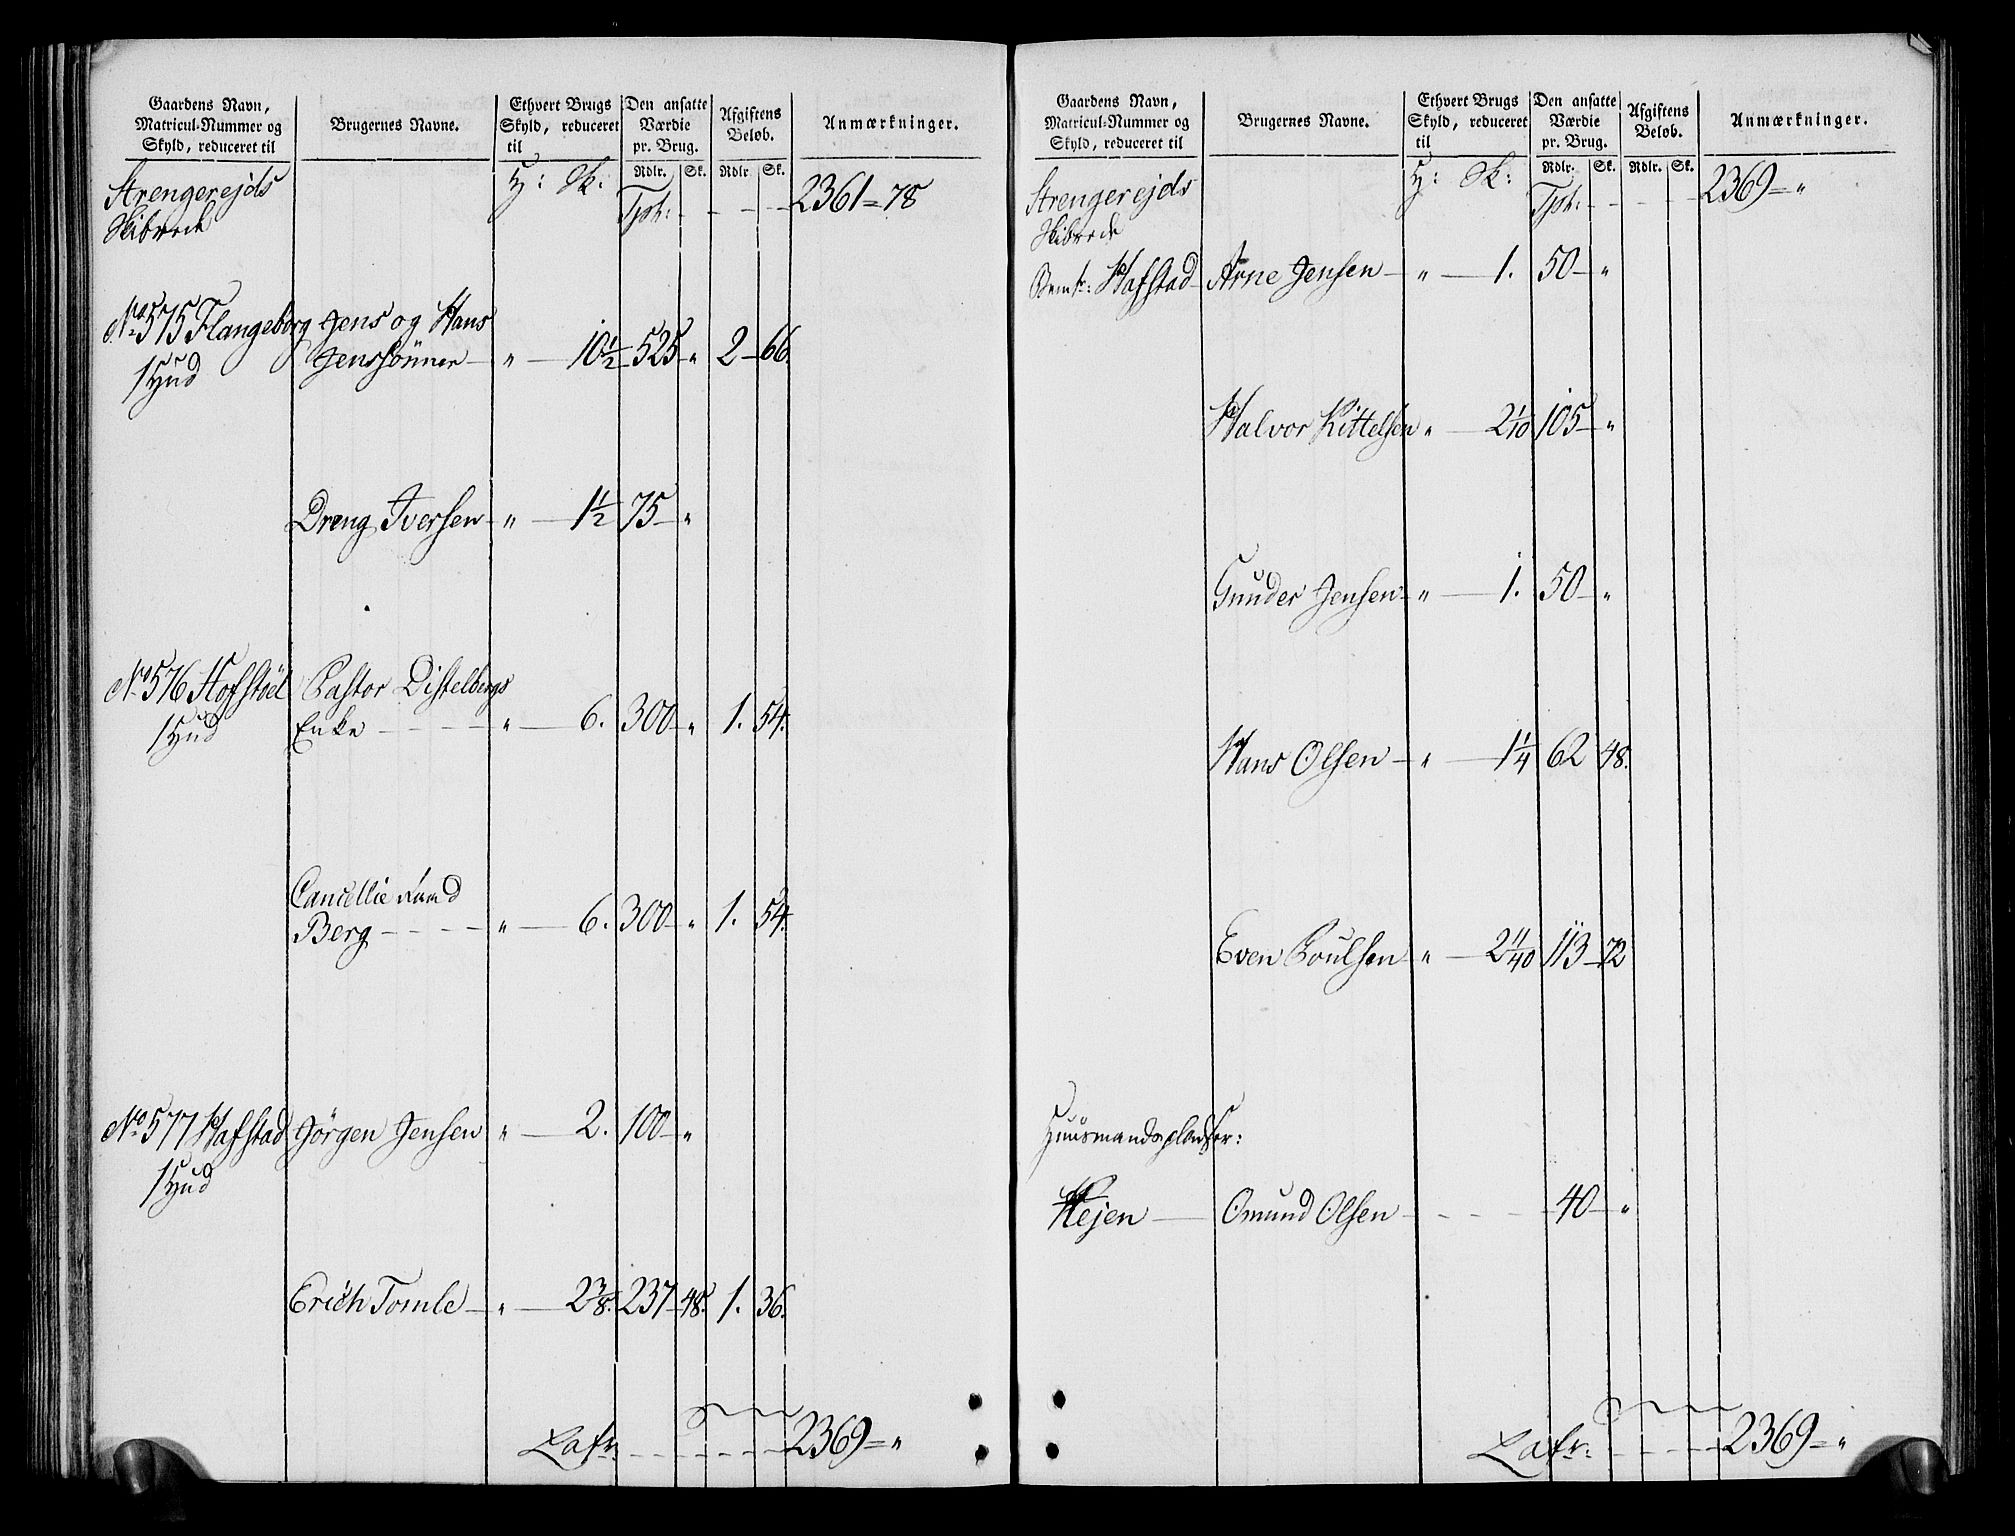 Gaardens Navn,
Matricul-Nummer og
Skyld, reduceret til
Brugernes Navne.
Ethvert Brugs
Skyld, reduceret
til
Den ansatte
Værdie
pr. Brug.
Afgiftens
Beløb.
Anmærkninger.
Rdlr. Sk. Rdlr Sk.
Strengerejds H: Sk:
Skibrede Tpt: - - - - 2361 = 78
No 575 Flangeborg Jens og Hans
1 Hud Jenssönner — " — 10 1/2 525 — " 2 — 66.
Dreng Iversen — " — 1 1/2 75 — "
No 576 Hofstöel Pastor Distelbergs
1 Hud Enke - - - - " — 6. 300 — " 1. 54.
Cancellie Raad
Berg - - - - " — 6. 300 — " 1. 54.
No 577 Hafstad Jörgen Jensen " — 2. 100 — "
1 Hud
Erich Tomle — " — 2 3/8. 237 — 48. 1. 36.
Latr: - - - - - 2369 = "
Gaardens Navn,
Matricul-Nummer og
Skyld, reduceret til
Brugernes Navne.
Ethvert Brugs
Skyld, reduceret
til
Den ansatte
Værdie
pr. Brug.
Afgiftens
Beløb.
Anmærkninger.
Rdlr. Sk. Rdlr. Sk.
Strengerejds H: Sk:
Skibrede Tpt: - - - - 2369 = "
Hafstad Arne Jensen — " — 1. 50 — "
Halvor Kittelsen " — 2 1/10 105 — "
Gunder Jensen — " — 1. 50 — "
Hans Olsen — " — 1 1/4 62 48.
Even Poulsen " — 2 11/40 113 — 72
Huusmandspladser:
Hejen — Omund Olsen - - - - 40 — "
Latr: - - - - 2369 = "